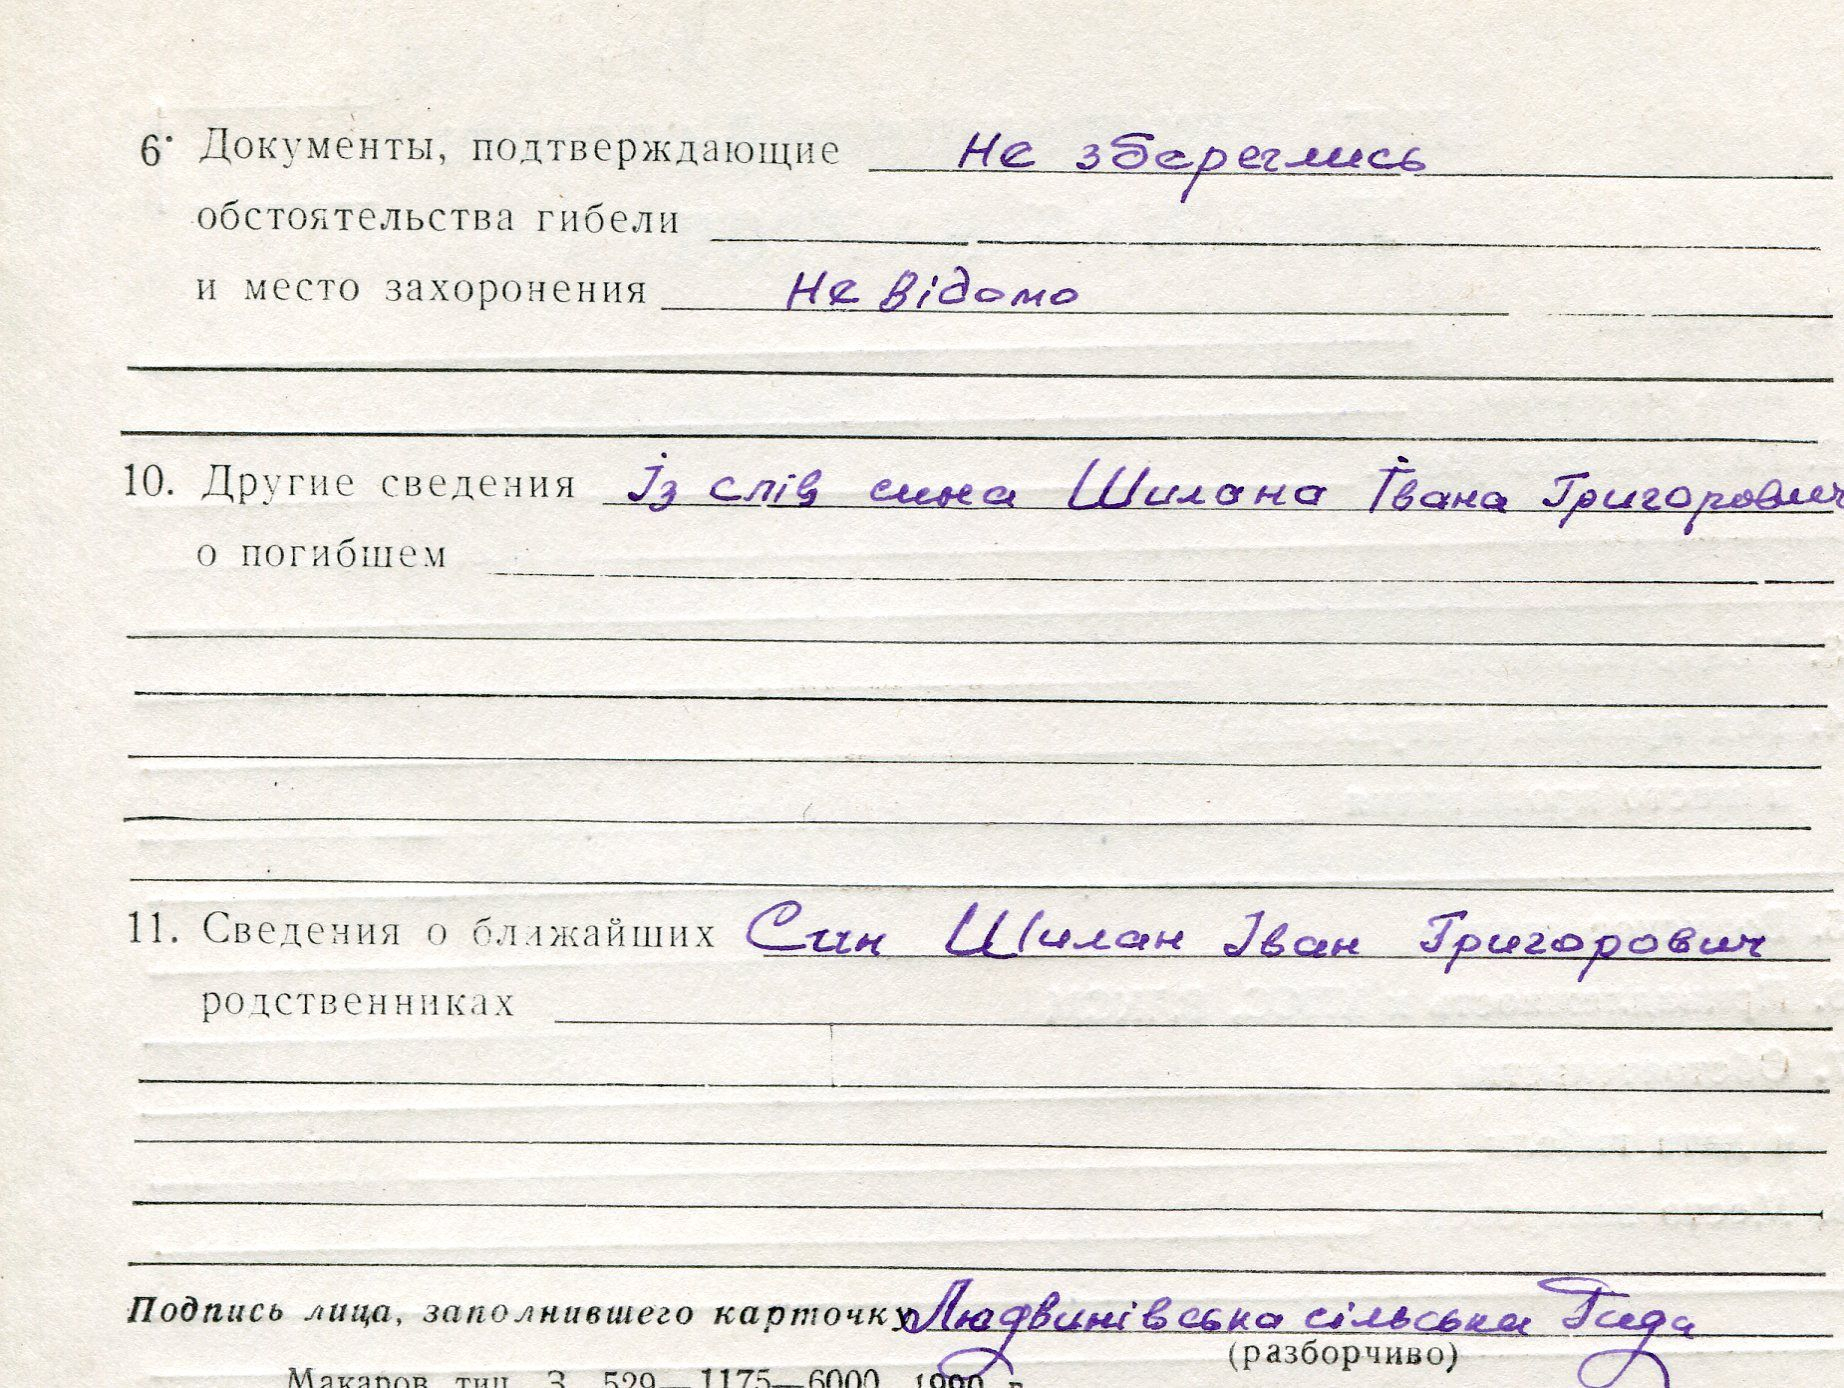 6. Документы, подтверждающие Не збереглись
обстоятельства гибели
и место захоронения Не відомо
10. Другие сведения Із слів сина Шилана Івана Григорович
о погибшем
11. Сведения о ближайших Син Шилан Іван Григорович
родственниках
Подпись лица, заполнившего карточку Людвинівська сільська Рада
(разборчиво)
Макаров тип. З. 529—1175—6000 1990 г.